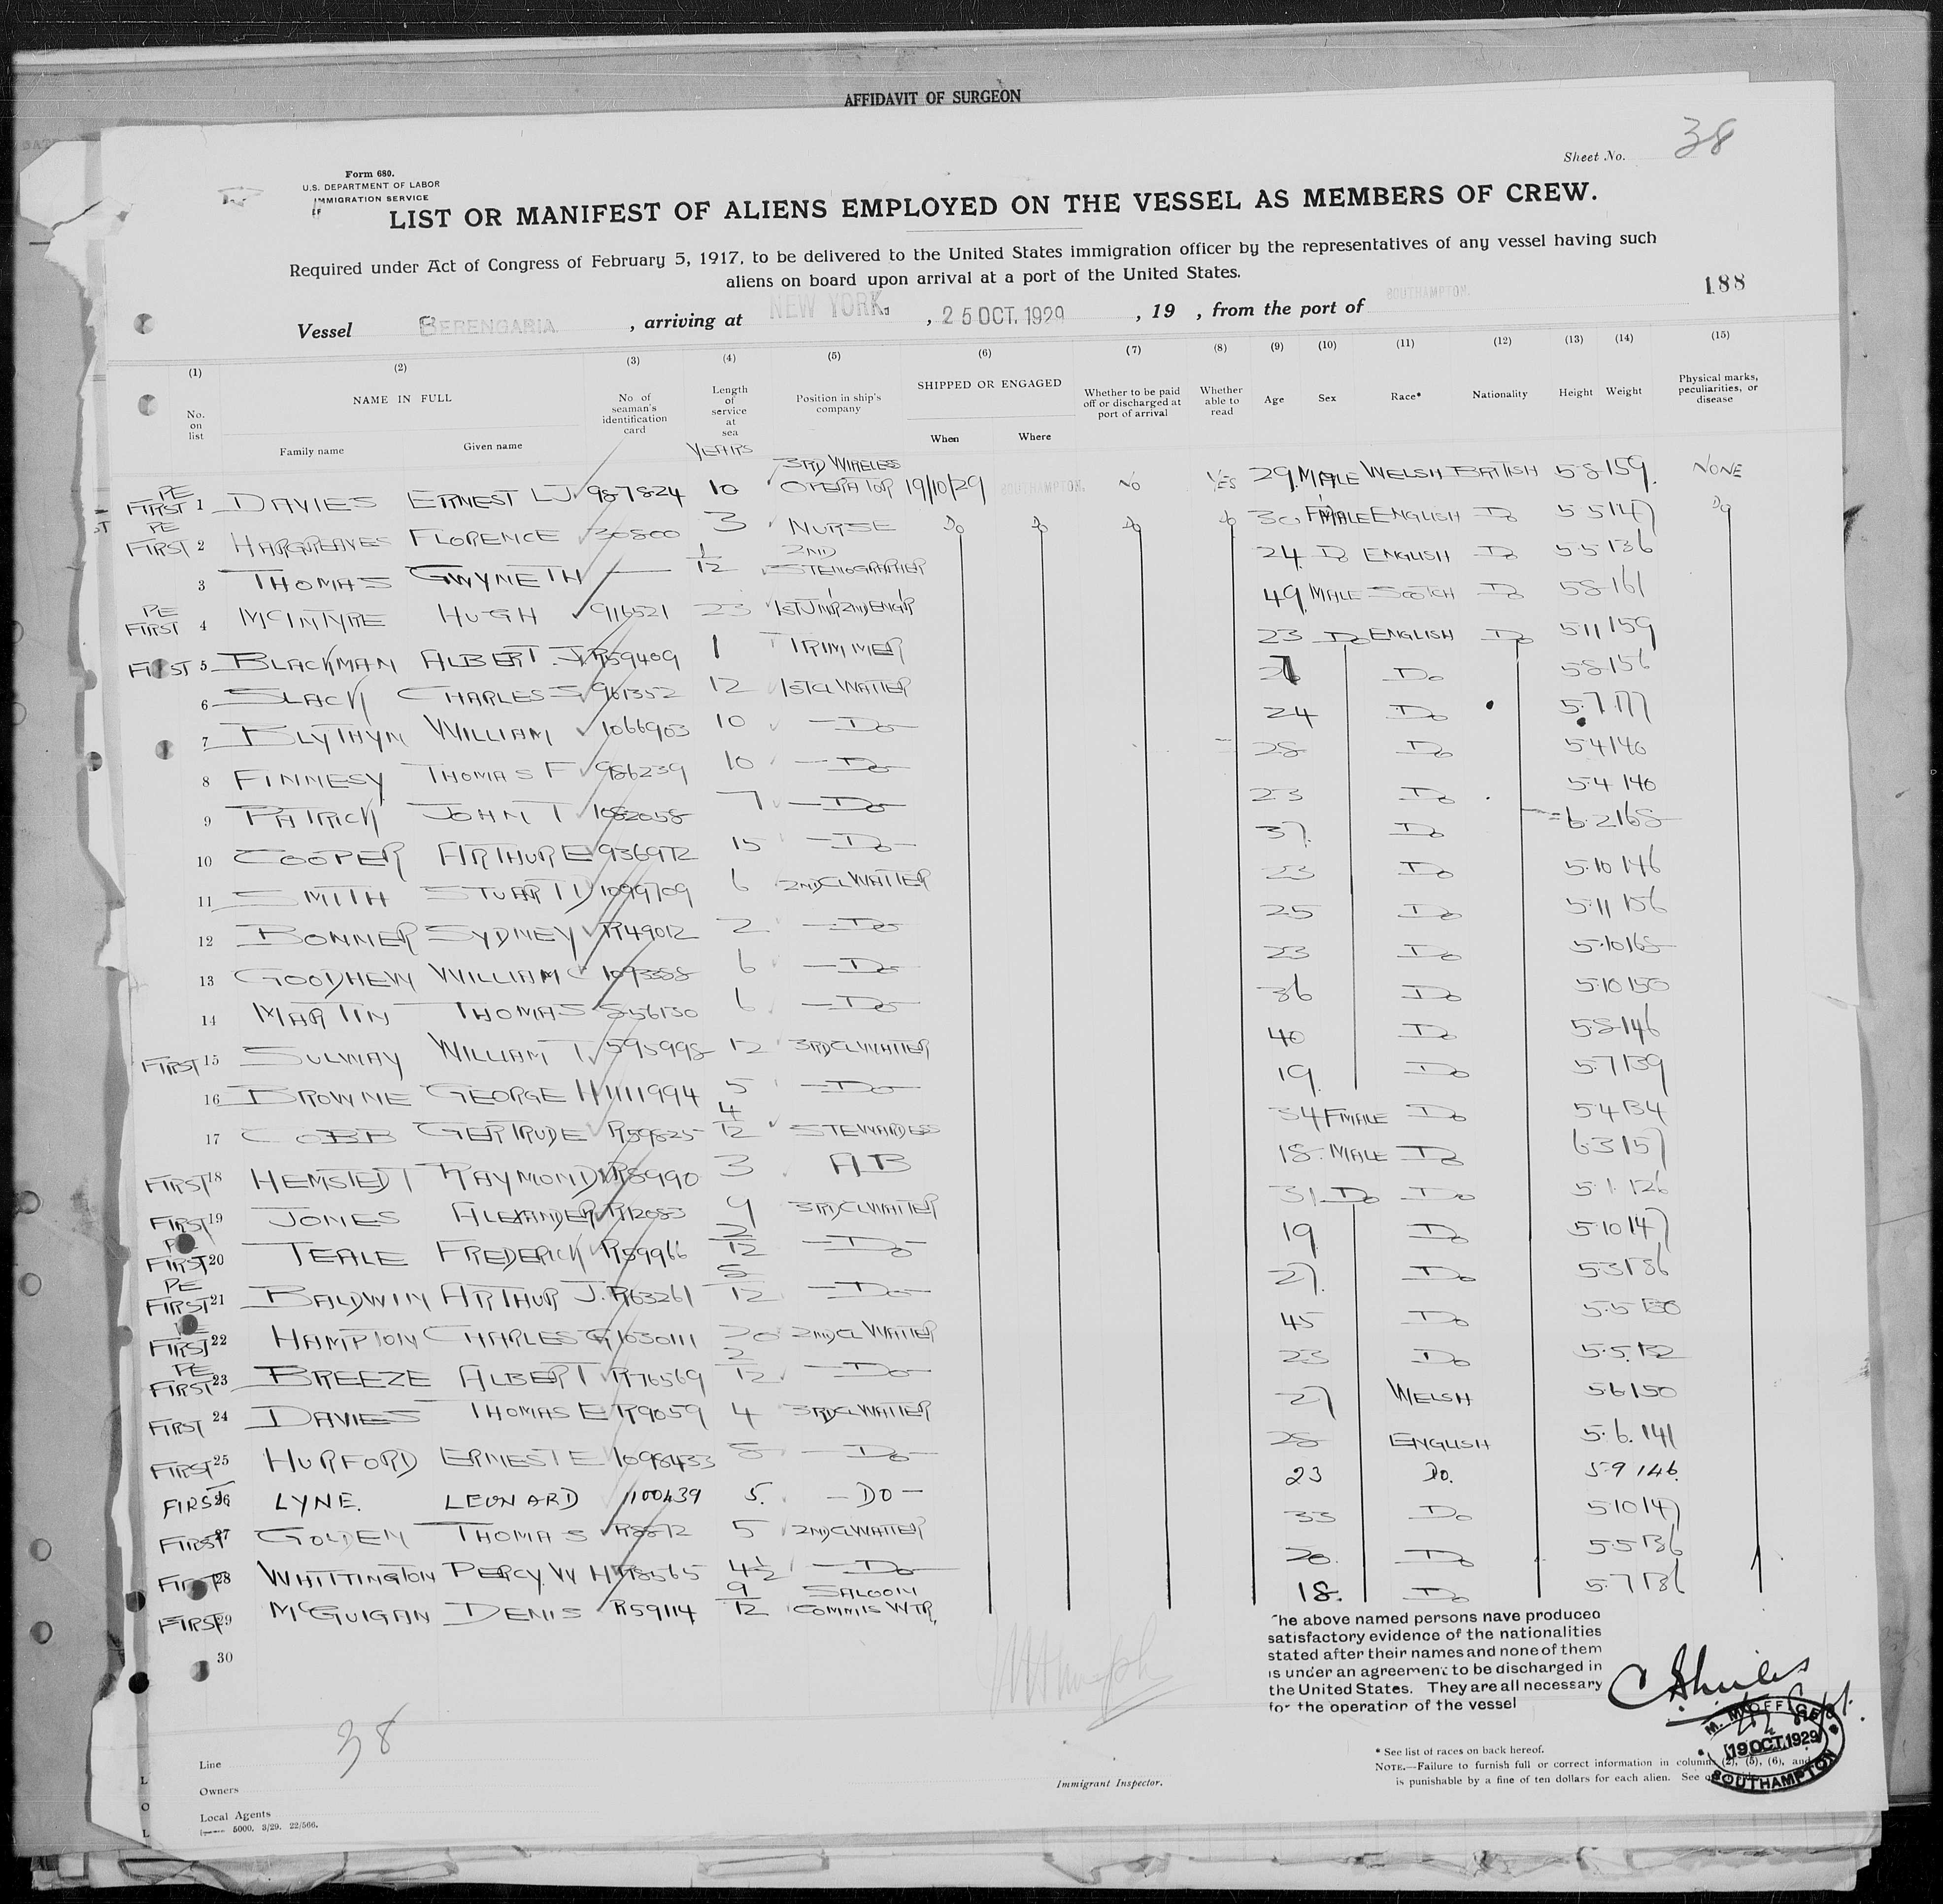 AFFIDAVIT OF SURGEON
Sheet No. 38
Form 680.
U.S. DEPARTMENT OF LABOR
IMMIGRATION SERVICE
LIST OR MANIFEST OF ALIENS EMPLOYED ON THE VESSEL AS MEMBERS OF CREW.
Required under Act of Congress of February 5, 1917, to be delivered to the United States immigration officer by the representatives of any vessel having such
aliens on board upon arrival at a port of the United States.
188
Vessel BERENGARIA , arriving at NEW YORK. , 25 OCT. 1929 , 19 , from the port of SOUTHAMPTON.
(1) (2) (3) (4) (5) (6) (7) (8) (9) (10) (11) (12) (13) (14) (15)
No. on list NAME IN FULL Family name Given name No. of seaman's identification card Length of service at sea Position in ship's company SHIPPED OR ENGAGED When Where Whether to be paid off or discharged at port of arrival Whether able to read Age Sex Race* Nationality Height Weight Physical marks, peculiarities, or disease
YEARS
PE FIRST 1 DAVIES ERNEST L J. 987824 10 3RD WIRELESS OPERATOR 19/10/29 SOUTHAMPTON. NO YES 29 MALE WELSH BRITISH 5-8 159 NONE
PE FIRST 2 HARGREAVES FLORENCE 30800 3 NURSE Do Do Do Do 30 FMALE ENGLISH Do 5 5 147 Do
3 THOMAS GWYNETH — 1/12 2ND STENOGRAPHER 24 Do ENGLISH Do 5.5 136
PE FIRST 4 McINTYRE HUGH 916521 23 1ST JNR 2ND ENGR 49 MALE SCOTCH Do 5 8 161
FIRST 5 BLACKMAN ALBERT. J R59409 1 TRIMMER 23 Do ENGLISH Do 5 11 159
6 SLACK CHARLES S 961352 12 1ST CL WAITER Do 5 8 156
7 BLYTHYN WILLIAM 1066903 10 — Do — 24 Do 5.7 177
8 FINNESY THOMAS F 986239 10 — Do 28 Do 5 4 146
9 PATRICK JOHN T 1082058 7 — Do 23 Do 5.4 140
10 COOPER ARTHUR E 936972 15 — Do — 37 Do 6.2 168
11 SMITH STUART D 1099709 6 2ND CL WAITER 23 Do 5.10 146
12 BONNER SYDNEY R49012 2 — Do 25 Do 5.11 156
13 GOODHEW WILLIAM C 1093358 6 — Do 23 Do 5.10 168
14 MARTIN THOMAS 856130 6 — Do 36 Do 5.10 150
FIRST 15 SULWAY WILLIAM T. 595998 12 3RD CL WAITER 40 Do 5 8 146
16 BROWNE GEORGE H 1111994 5 — Do — 19 Do 5.7 139
17 COBB GERTRUDE R59825 4/12 STEWARDESS 34 FMALE Do 5 4 134
FIRST 18 HEMSTEDT RAYMOND R8990 3 AB 18 MALE Do 6.3 157
FIRST 19 JONES ALEXANDER R12083 9 3RD CL WAITER 31 Do Do 5.1 126
FIRST 20 TEALE FREDERICK R59966 2/12 — Do — 19 Do 5.10 147
PE FIRST 21 BALDWIN ARTHUR J. R63261 5/12 — Do — 27 Do 5.3 136
FIRST 22 HAMPTON CHARLES G 1030111 20 2ND CL WAITER 45 Do 5.5 130
PE FIRST 23 BREEZE ALBERT R76569 2/12 — Do — 23 Do 5.5. 132
FIRST 24 DAVIES THOMAS E R9059 4 3RD CL WAITER 27 WELSH 5.6 150
FIRST 25 HURFORD ERNEST E 1098433 8 — Do — 28 ENGLISH 5.6. 141
FIRST 26 LYNE. LEONARD 1100439 5. — DO — 23 Do. 5.9 146.
FIRST 27 GOLDEN THOMAS R8872 5 2ND CL WAITER 33 Do 5.10 147
FIRST 28 WHITTINGTON PERCY. W H R18565 4½ — Do — 20 Do 5.5 136
FIRST 29 McGUIGAN DENIS R59114 9/12 SALOON COMMIS WTR. 18. Do 5.7 136
30
The above named persons have produced
satisfactory evidence of the nationalities
stated after their names and none of them
is under an agreement to be discharged in
the United States. They are all necessary
for the operation of the vessel
M. M. OFFICE
19 OCT. 1929
SOUTHAMPTON
38
Line
Owners
Local Agents
5000. 3/29. 22/566.
Immigrant Inspector.
* See list of races on back hereof.
NOTE.—Failure to furnish full or correct information in columns (2), (5), (6), and
is punishable by a fine of ten dollars for each alien. See